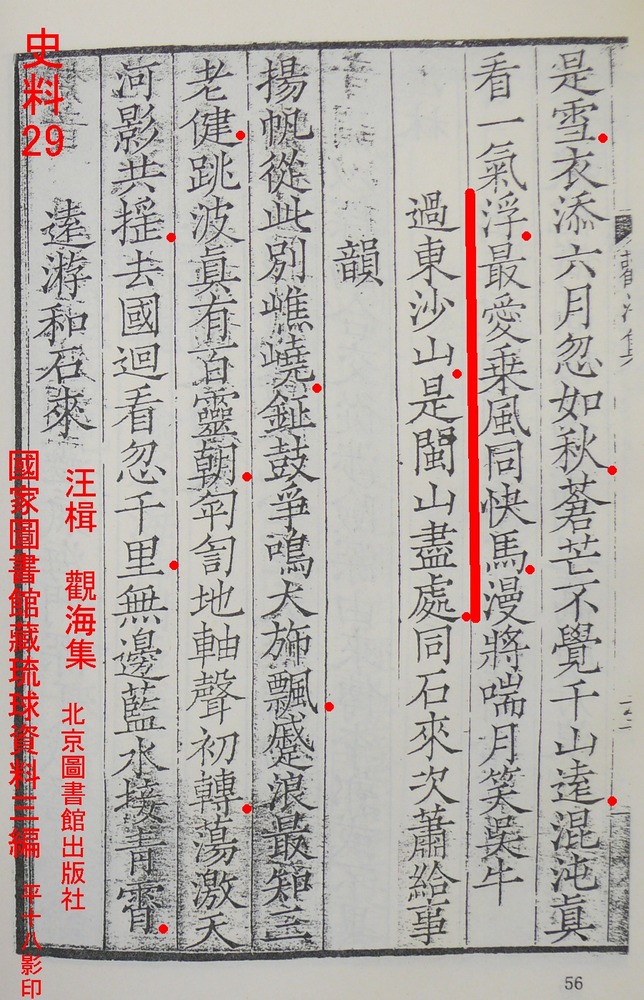 觀海集
是雪衣添六月忽如秋蒼茫不覺千山遠混沌真
看一氣浮最愛乗風同快馬漫將喘月笑吳牛
過東沙山是閩山盡處同石來次蕭給事
韻
揚帆從此別嶕嶢鉦鼓爭鳴大斾飄蹙浪最知三
老健跳波真有百靈朝匉訇地軸聲初轉蕩激天
河影共揺去國迴看忽千里無邊藍水接青霄
遠游和石來
史料29
汪楫 觀海集 北京圖書館出版社
國家圖書館藏琉球資料三編 平十八影印
56